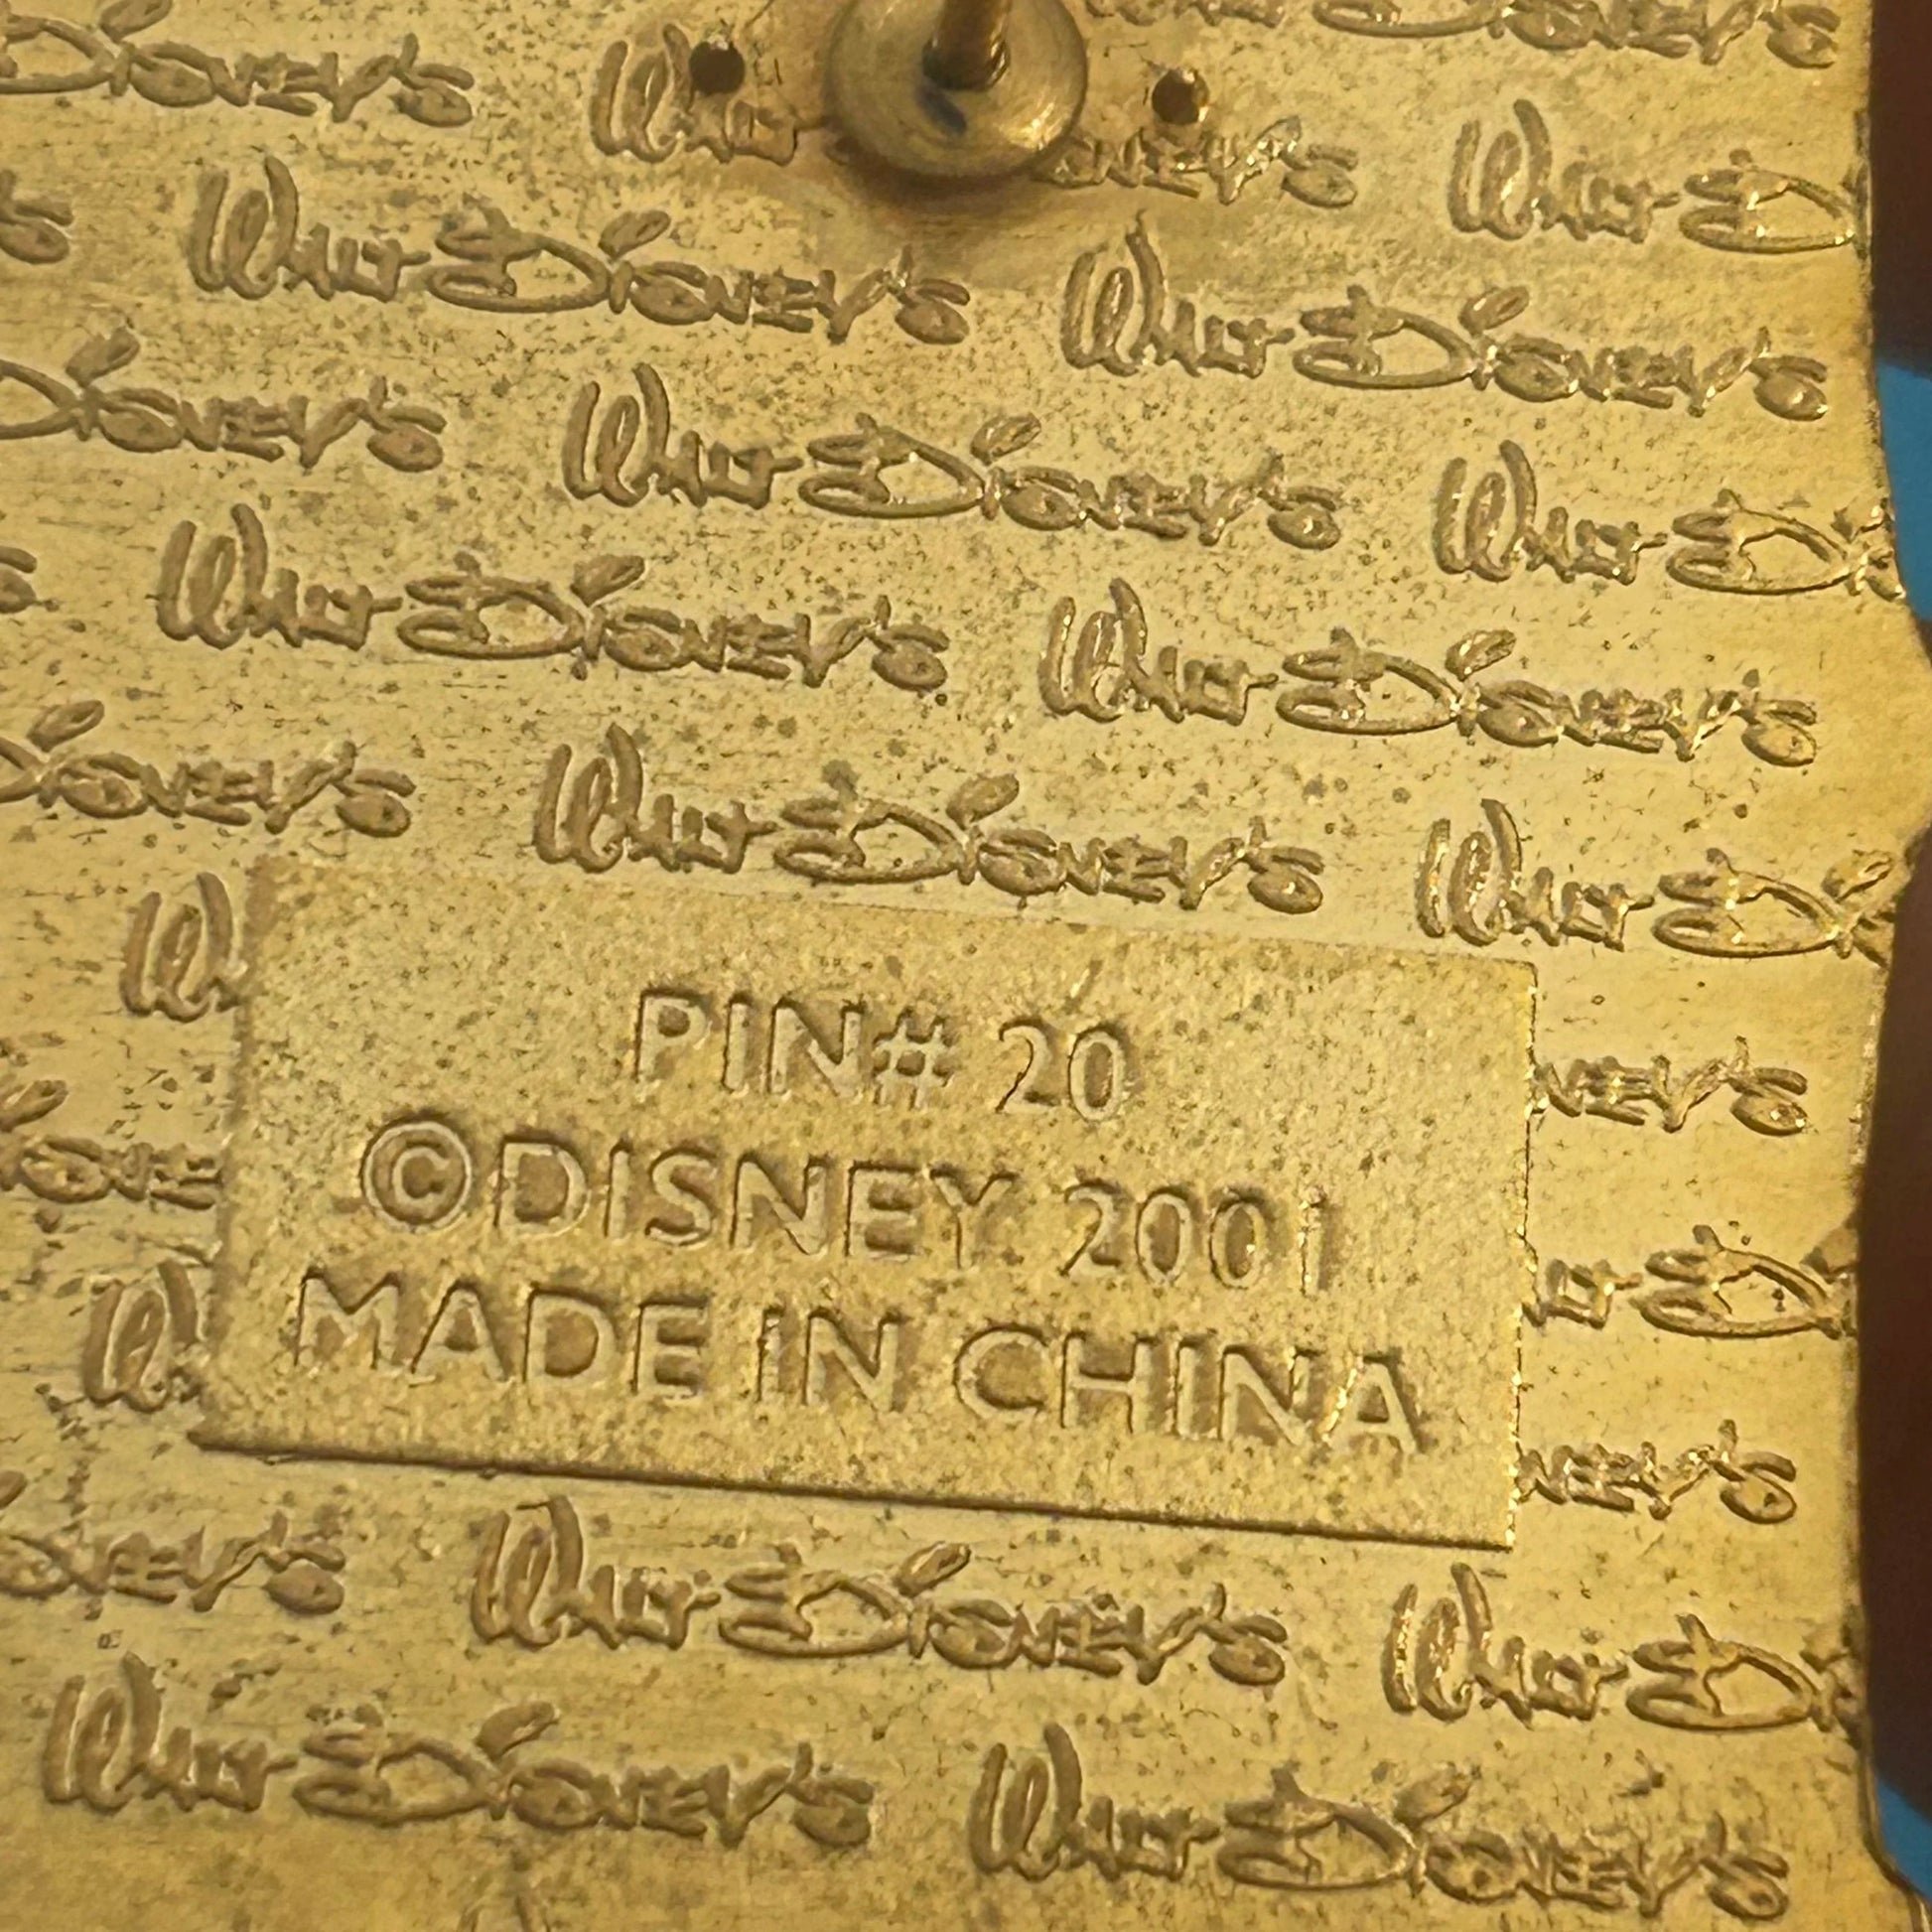 DISNEY'S WALT DISNEY'S
WALT NEY'S WALT D
WALT DISNEY'S WALT DISNEY'S
DISNEY'S WALT DISNEY'S WALT D
WALT DISNEY'S WALT DISNEY'S
DISNEY'S WALT DISNEY'S WALT D
PIN# 20
©DISNEY 2001
MADE IN CHINA
WALT DISNEY'S WALT D
WALT DISNEY'S WALT DISNEY'S